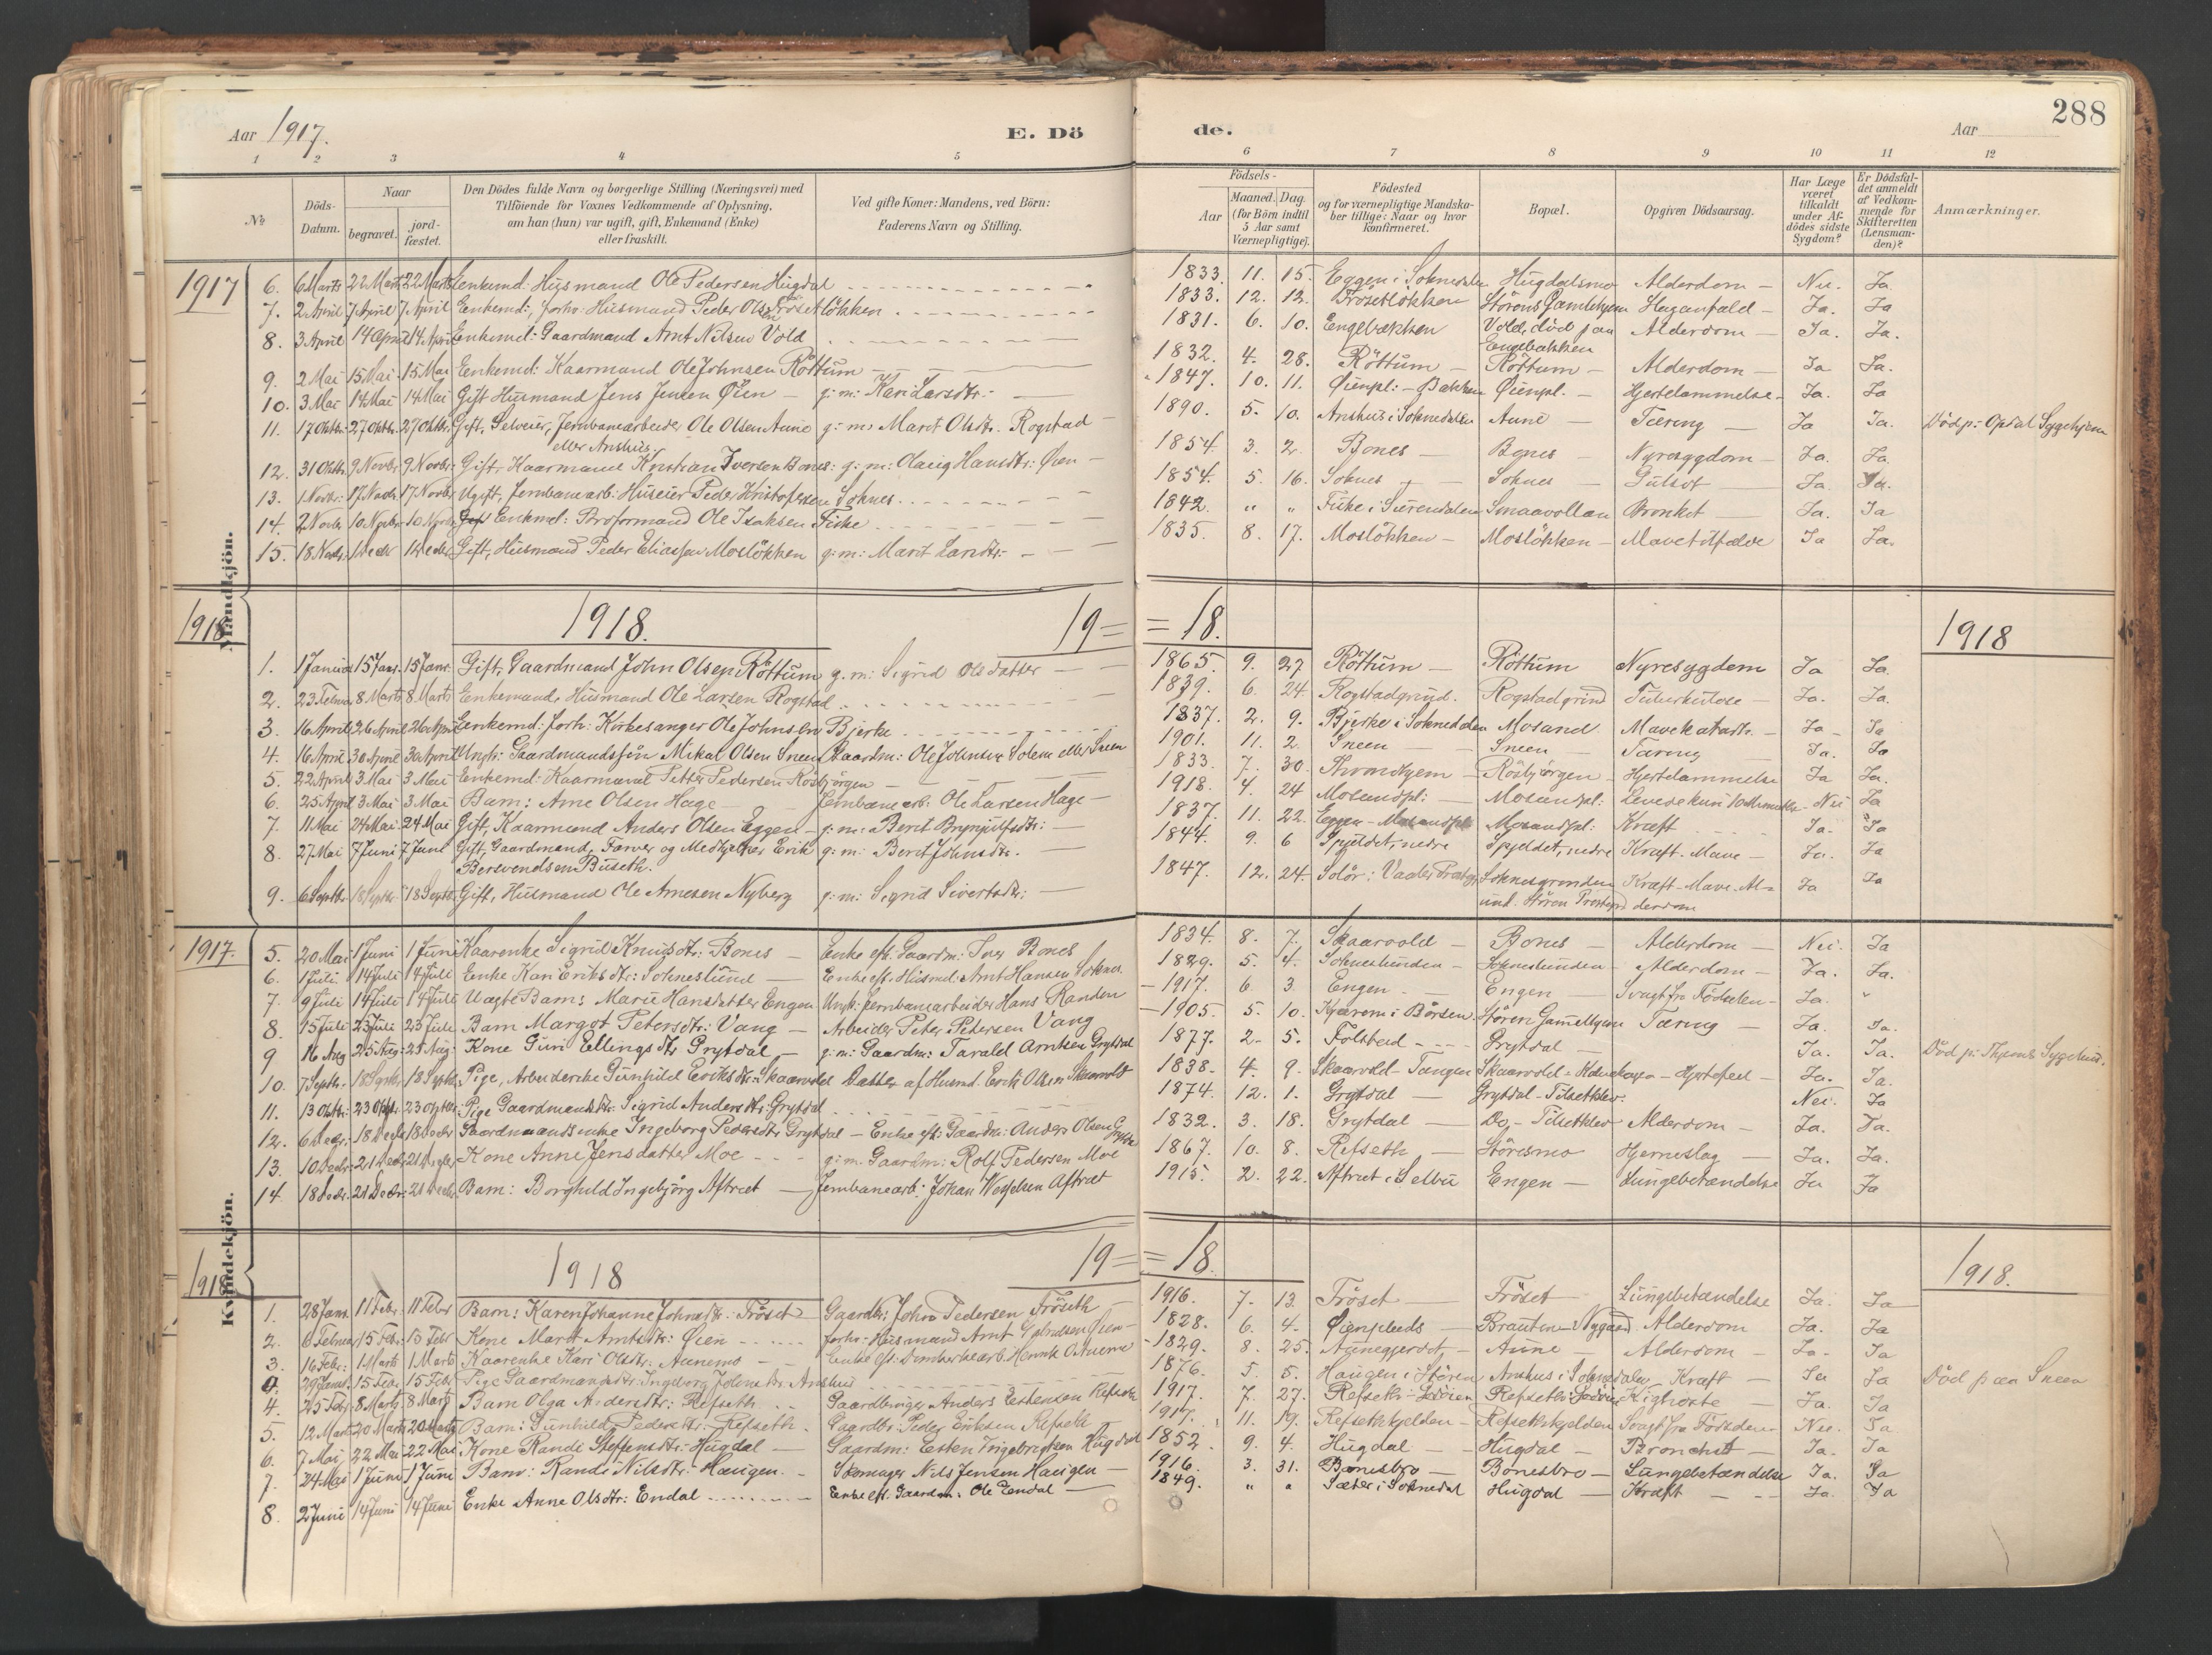 288
Aar 1917. E. Dö de. Aar
1 2 3 4 5 6 7 8 9 10 11 12
No
Döds-Datum.
Naar
begravet.
jord-fæstet.
Den Dödes fulde Navn og borgerlige Stilling (Næringsvei) med
Tilföiende for Voxnes Vedkommende af Oplysning,
om han (hun) var ugift, gift, Enkemand (Enke)
eller fraskilt.
Ved gifte Koner: Mandens, ved Börn:
Faderens Navn og Stilling.
Födsels-
Aar
Maaned. Dag.
(for Börn indtil
5 Aar samt
Værnepligtige).
Födested
og for værnepligtige Mandska-
ber tillige: Naar og hvor
konfirmeret.
Bopæl.
Opgiven Dödsaarsag.
Har Læge
været
tilkaldt
under Af-
dödes sidste
Sygdom?
Er Dödsfal-
det anmeldt
af Vedkom-
mende for
Skifteretten
(Lensman-
den)?
Anmærkninger.
Mandkjön.
1917 6. 6 Marts 22 Marts 22 Marts Enkemd: Husmand Ole Pedersen Hugdal 1833. 11. 15. Eggen i Soknedalen Hugdalsmo Alderdom - Nei. Ja.
7. 2 April 7 April 7 April Enkemd:, forhv: Husmand Peder Olsen Frösetlökken 1833. 12. 12. Frösetlökken Störens Gamlehjem Slaganfald - Ja. Ja
8. 3 April 14 April 14 April Enkemd: Gaardmand Arnt Nilsen Vold 1831. 6. 10. Engebækken Vold, död paa Engebækken Alderdom - Ja. Ja.
9. 2 Mai 15 Mai 15 Mai Enkemd: Kaarmand Ole Johnsen Röttum 1832. 4. 28. Röttum - Röttum - Alderdom - Ja Ja.
10. 3 Mai 14 Mai 14 Mai Gift Husmand Jens Jensen Øien - g: m: Kari Larsdtr: - 1847. 10. 11. Øienpl: - Bakken Øienpl. - Hjertelammelse - Ja. Ja
11. 17 Oktbr. 27 Oktbr. 27 Oktbr. Gift, Selveier, Jernbanearbeider Ole Olsen Aune eller Anshus. g: m: Marit Olsdtr. Rogstad 1890. 5. 10. Anshus i Soknedalen Aune - Tæring - Ja Ja. Död p: Opdal Sygehjem
12. 31 Oktbr. 9 Novbr. 9 Novbr: Gift, Kaarmand Kristian Iversen Bones: g: m: Olaug Hansdtr: Øien - 1854. 3. 2. Bones - Bones - Nyresygdom - Ja. Ja.
13. 1 Novbr: 17 Novbr. 17 Novbr Ugift, Jernbanearb: Huseier Peder Kristofersen Soknes 1854. 5. 16. Soknes - Soknes - Gulsot - Ja. Ja.
14. 2 Novbr. 10 Novbr 10 Novbr Enkemd: Broformand Ole Isaksen Fiske 1842. " " Fiske i Surendalen Smaavollan Bronkit - Ja. Ja
15. 18 Novbr. 1 Decbr 1 Decbr. Gift, Husmand Peder Eliassen Moslökken g: m: Marit Larsdtr: - 1835. 8. 17. Moslökken - Moslökken - Mavetilfælde Ja Ja.
1918 1918. 19 = = 18. 1918
1. 1 Januar 15 Janr. 15 Janr. Gift, Gaardmand John Olsen Röttum g. m: Sigrid Olsdatter 1865. 9. 27 Röttum - Röttum Nyresygdom Ja Ja.
2. 23 Februar 8 Marts 8 Marts Enkemand, Husmand Ole Larsen Rogstad 1839. 6. 24. Rogstadgrind. Rogstadgrind Tuberkulose - Ja. Ja.
3. 16 April 26 April 26 April Enkemd: forh: Kirkesanger Ole Johnsen Bjerke 1837. 2. 9. Bjerke i Soknedalen Mosand Mavekatarh. - Ja - Ja
4. 16 April 30 April 30 April Ungk: Gaardmandssön Mikal Olsen Sneen Gaardm: Ole Johnsen Solem eller Sneen 1901. 11. 2. Sneen Sneen - Tæring Ja. Ja
5. 22 April 3 Mai 3 Mai Enkemd: Kaarmand Petter Pedersen Rosbjörgen 1833. 7. 30. Throndhjem Rösbjörgen - Hjertelammelse Ja Ja.
6. 25 April 3 Mai 3 Mai Barn: Arne Olsen Hage - Jernbanearb: Ole Larsen Hage - 1918. 4. 24 Mosandpl: - Mosandpl: Levede kun 10 Minutter - Nei Ja
7. 11 Mai 24 Mai 24 Mai Gift, Kaarmand Anders Olsen Eggen - g: m: Berit Brynjulfsdtr: - 1837. 11. 22. Eggen - Mosandpl: Mosandpl: Kræft Ja. Ja
8. 27 Mai 7 Juni 7 Juni Gift, Gaardmand, Farver og Medhjælper Erik Bersvendsen Buseth. g: m: Berit Johnsdtr. 1844. 9. 6 Spjeldet, nedre Spjeldet, nedre Kræft. Mave - Ja. Ja
9. 6 Septbr. 18 Septbr. 18 Septbr. Gift, Husmand Ole Arnesen Nyberg g: m: Sigrid Sivertsdtr: - 1847. 12. 24. Solör: Vaaler Præstgj. Soknesgrinden und. Stören Præstegd Kræft - Mave. Alderdom Ja Ja
Kvindekjön.
1917. 5. 20 Mai 1 Juni 1 Juni Kaarenke Sigrid Knudsdtr: Bones - Enke eft. Gaardm: Iver Bones 1834. 8. 7. Skaarvold - Bones - Alderdom - Nei. Ja
6. 1 Juli 14 Juli 14 Juli Enke Kari Eriksdtr: Sokneslund - Enke eft. Husmd: Arnt Hansen Soknes. 1829. 5. 4. Sokneslunden - Sokneslunden - Alderdom - Ja. Ja.
7. 9 Juli 14 Juli 14 Juli Uægte Barn: Marie Hansdatter Engen Ungk: Jernbanearbeider Hans Randen - 1917. 6. 3. Engen - Engen - Svagt fra Födselen - Ja. "
8. 15 Juli 23 Juli 23 Juli Barn Margot Petersdtr: Vang - Arbeider Peter Petersen Vang - 1905. 5. 10. Kjærem i Börsen. Stören Gamelhjem Tæring - Ja. Ja.
9 16 Aug 25 Aug: 25 Aug: Kone Guri Ellingsdtr Grytdal - g: m: Gaardm: Tarald Arntsen Grytdal 1877. 2. 5. Folstad Grytdal - Ja. Ja. Död p: Thjems Sygehus.
10. 7 Septbr. 18 Septbr. 18 Septbr. Pige, Arbeiderske Gunhild Eriksdtr: Skaarvold Datter af Husmd. Erik Olsen Skaarvold 1838. 4. 9. Skaarvold - Tangen Skaarvold - Hjertefeil - Ja. Ja.
11. 13 Oktbr. 23 Oktbr. 23 Oktbr. Pige Gaardmandsdtr. Sigrid Andersdtr: Grytdal 1874. 12. 1. Grytdal - Grytdal - Tilsetklev. Nei. Ja
12. 6 Decbr: 18 Decbr 18 Decbr Gaardmandsenke Ingeborg Pedersdtr. Grytdal - Enke eft. Gaardm: Anders Olsen Grytdal 1832. 3. 18. Grytdal - Do, - Tilsetklev Alderdom - Ja. Ja.
13. 10 Decbr: 21 Decbr 21 Decbr Kone Anne Jensdatter Moe g: m. Gaardm: Rolf Pedersen Moe 1867. 10. 8. Refseth - Störesmo Hjerneslag - Ja. Ja.
14. 18 Decbr. 21 Decbr: 21 Decbr Barn: Borghild Ingebjörg Aftret - Jernbanearb: Johan Wesselsen Aftret 1915. 2. 22. Aftret i Selbu Engen - Lungebetændelse Ja Ja
1918 1918 19 = = 18. 1918.
1. 28 Janr. 11 Febr. 11 Febr Barn: Karen Johanne Johnsdtr. Fröset Gaardbr: John Pedersen Fröseth - 1916. 7. 13. Fröset - Fröset - Lungebetændelse Ja. Ja
2. 6 Februar 15 Febr. 15 Febr Kone Marit Arntsdtr: Øien Forhv: Husmand Arnt Øien 1828. 6. 4. Øienpleds - Brauten - Nygaard Alderdom Ja. Ja
3. 16 Febr: 1 Marts 1 Marts Kaarenke Kari Olsdtr: Aunemo - Enke eft. Henrik O Aune - 1829. 8. 25. Aunegjerdet - Aune - Alderdom - Ja. Ja
4. 29 Janr: 15 Febr 15 Febr Pige Gaardmandsdtr. Ingeborg Johnsdtr. Anshus 1876. 5. 5. Haugen i Stören Anshus i Soknedalen Kræft - Ja Ja Död paa Sneen
4. 25 Febr. 8 Marts 8 Marts Barn Olga Andersdtr: Refseth Gaardbruger Anders Estensen Refseth 1917. 7. 27. Refseth - Refseth - Kighoste - Ja. Ja
5. 12 Marts 20 Marts 20 Marts Barn: Gunhild Pedersdtr: Refseth. Gaardbr. Peder Eriksen Refseth 1917. 11. 19. Refsethkjelden - Refsethkjelden Svagt fra Födselen - Nei. Ja
6. 7 Mai 22 Mai 22 Mai Kone Randi Steffensdtr: Hugdal - Gaardm: Esten Ingebrigtsen Hugdal 1852 9. 4. Hugdal - Hugdal - Bronchit - Ja. Ja
7. 24 Mai 1 Juni 1 Juni Barn: Randi Nilsdtr: Haugen. - Skomager Nils Jensen Haugen - 1916. 3. 31. Bonesbro - Bonesbro - Lungebetændelse Ja. Ja
8. 2 Juni 14 Juni 14 Juni Enke Anne Olsdtr: Endal Enke eft. Gaardm. Ole Endal - 1849. " " Sæter i Soknedal Hugdal - Kræft - Ja. Ja